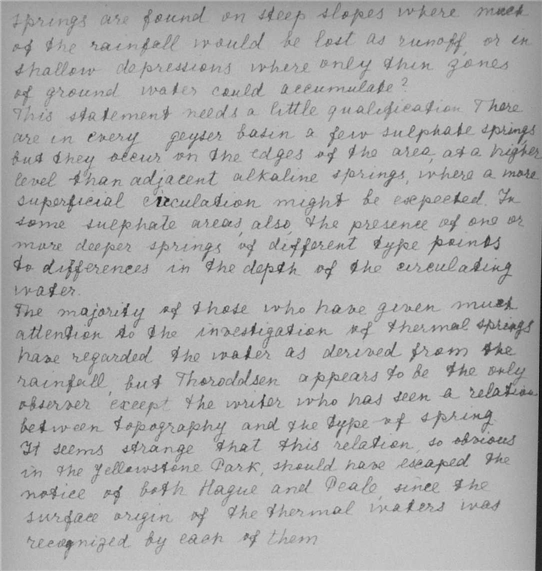 springs are found on steep slopes where much
of the rainfall would be lost as runoff, or in
shallow depressions where only thin zones
of ground water could accumulate?
This statement needs a little qualification. There
are in every geyser basin a few sulphate springs,
but they occur on the edges of the area, at a higher
level than adjacent alkaline springs, where a more
superficial circulation might be expected. In
some sulphate areas, also, the presence of one or
more deeper springs of different type points
to differences in the depth of the circulating
water.
The majority of those who have given much
attention to the investigation of thermal springs
have regarded the water as derived from the
rainfall, but Thoroddsen appears to be the only
observer, except the writer who has seen a relation
between topography and the type of spring.
It seems strange that this relation, so obvious
in the Yellowstone Park, should have escaped the
notice of both Hague and Peale, since the
surface origin of the thermal waters was
recognized by each of them